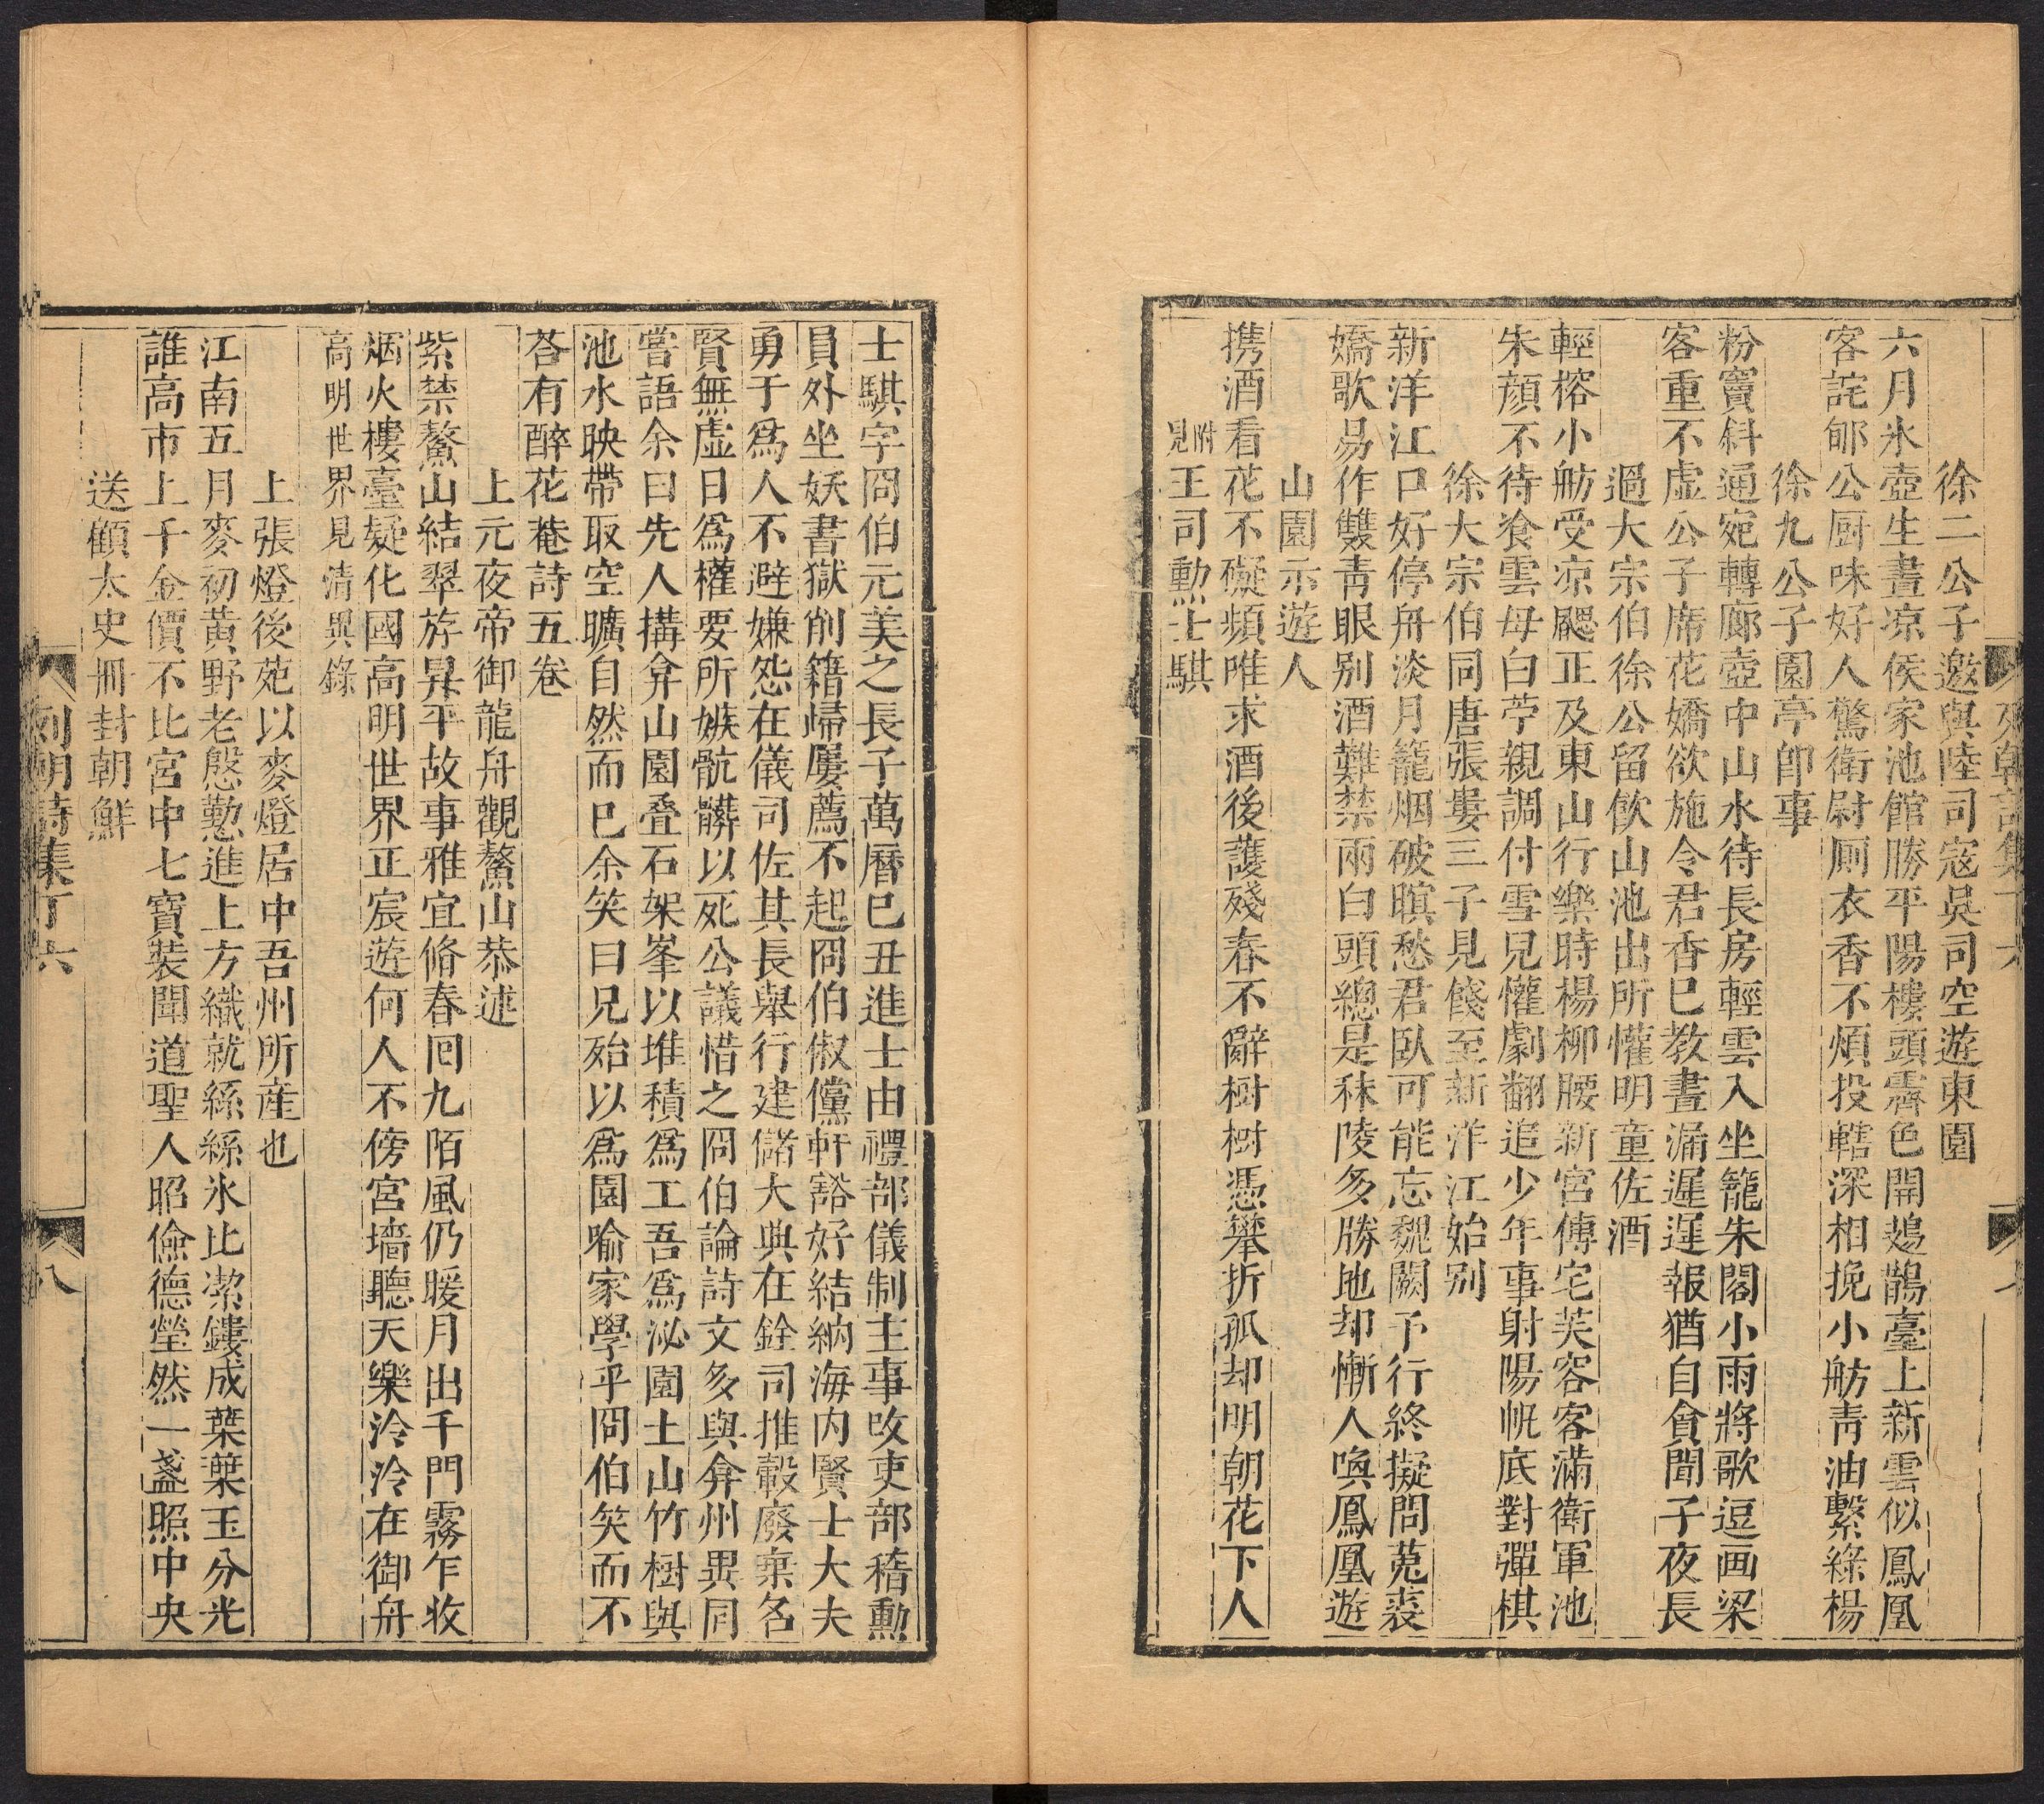 徐二公子邀與陸司寇吳司空遊東園
六月氷壺生晝凉侯家池館勝平陽樓頭霽色開鳷鵲臺上新雲似鳳凰
客詫郇公厨味好人驚衛尉厠衣香不煩投轄深相挽小舫靑油繫綠楊
徐九公子園亭卽事
粉竇斜通宛轉廊壺中山水待長房輕雲入坐籠朱閣小雨將歌逗画梁
客重不虛公子席花嬌欲施令君香已教晝漏遲遲報猶自貪聞子夜長
過大宗伯徐公留飮山池出所懽明童佐酒
輕榕小舫受凉颸正及東山行樂時楊柳腰新宮傳宅芙容客滿衛軍池
朱顔不待飡雲母白苧親調付雪兒懽劇翻追少年事射陽帆底對彈棋
徐大宗伯同唐張婁三子見餞至新洋江始别
新洋江口好停舟淡月籠烟破暝愁君臥可能忘魏闕予行終擬問菟裘
嬌歌易作雙靑眼别酒難禁兩白頭總是秣陵多勝地却慚人喚鳳凰遊
山園示遊人
携酒看花不礙頻唯求酒後護殘春不辭樹樹憑攀折孤却明朝花下人
附見王司勳士騏
列朝詩集丁六
士騏字冏伯元美之長子萬曆已丑進士由禮部儀制主事攺吏部稽勳
員外坐妖書獄削籍歸屢薦不起冏伯俶儻軒豁好結納海内賢士大夫
勇于爲人不避嫌怨在儀司佐其長舉行建儲大典在銓司推轂廢棄名
賢無虛日爲權要所嫉骯髒以死公議惜之冏伯論詩文多與弇州異同
嘗語余曰先人搆弇山園叠石架峯以堆積爲工吾爲泌園土山竹樹與
池水映帶取空曠自然而已余笑曰兄殆以爲園喻家學乎冏伯笑而不
荅有醉花菴詩五卷
上元夜帝御龍舟觀鰲山恭述
紫禁鰲山結翠斿昇平故事雅宜脩春囘九陌風仍暖月出千門霧乍收
烟火樓臺疑化國高明世界正宸遊何人不傍宮墻聽天樂泠泠在御舟
高明世界見清異錄
上張燈後苑以麥燈居中吾州所産也
江南五月麥初黄野老慇懃進上方織就絲絲氷比潔鏤成葉葉玉分光
誰高市上千金價不比宮中七寶裝聞道聖人昭儉德瑩然一盞照中央
送顧太史冊封朝鮮
列朝詩集丁六
八